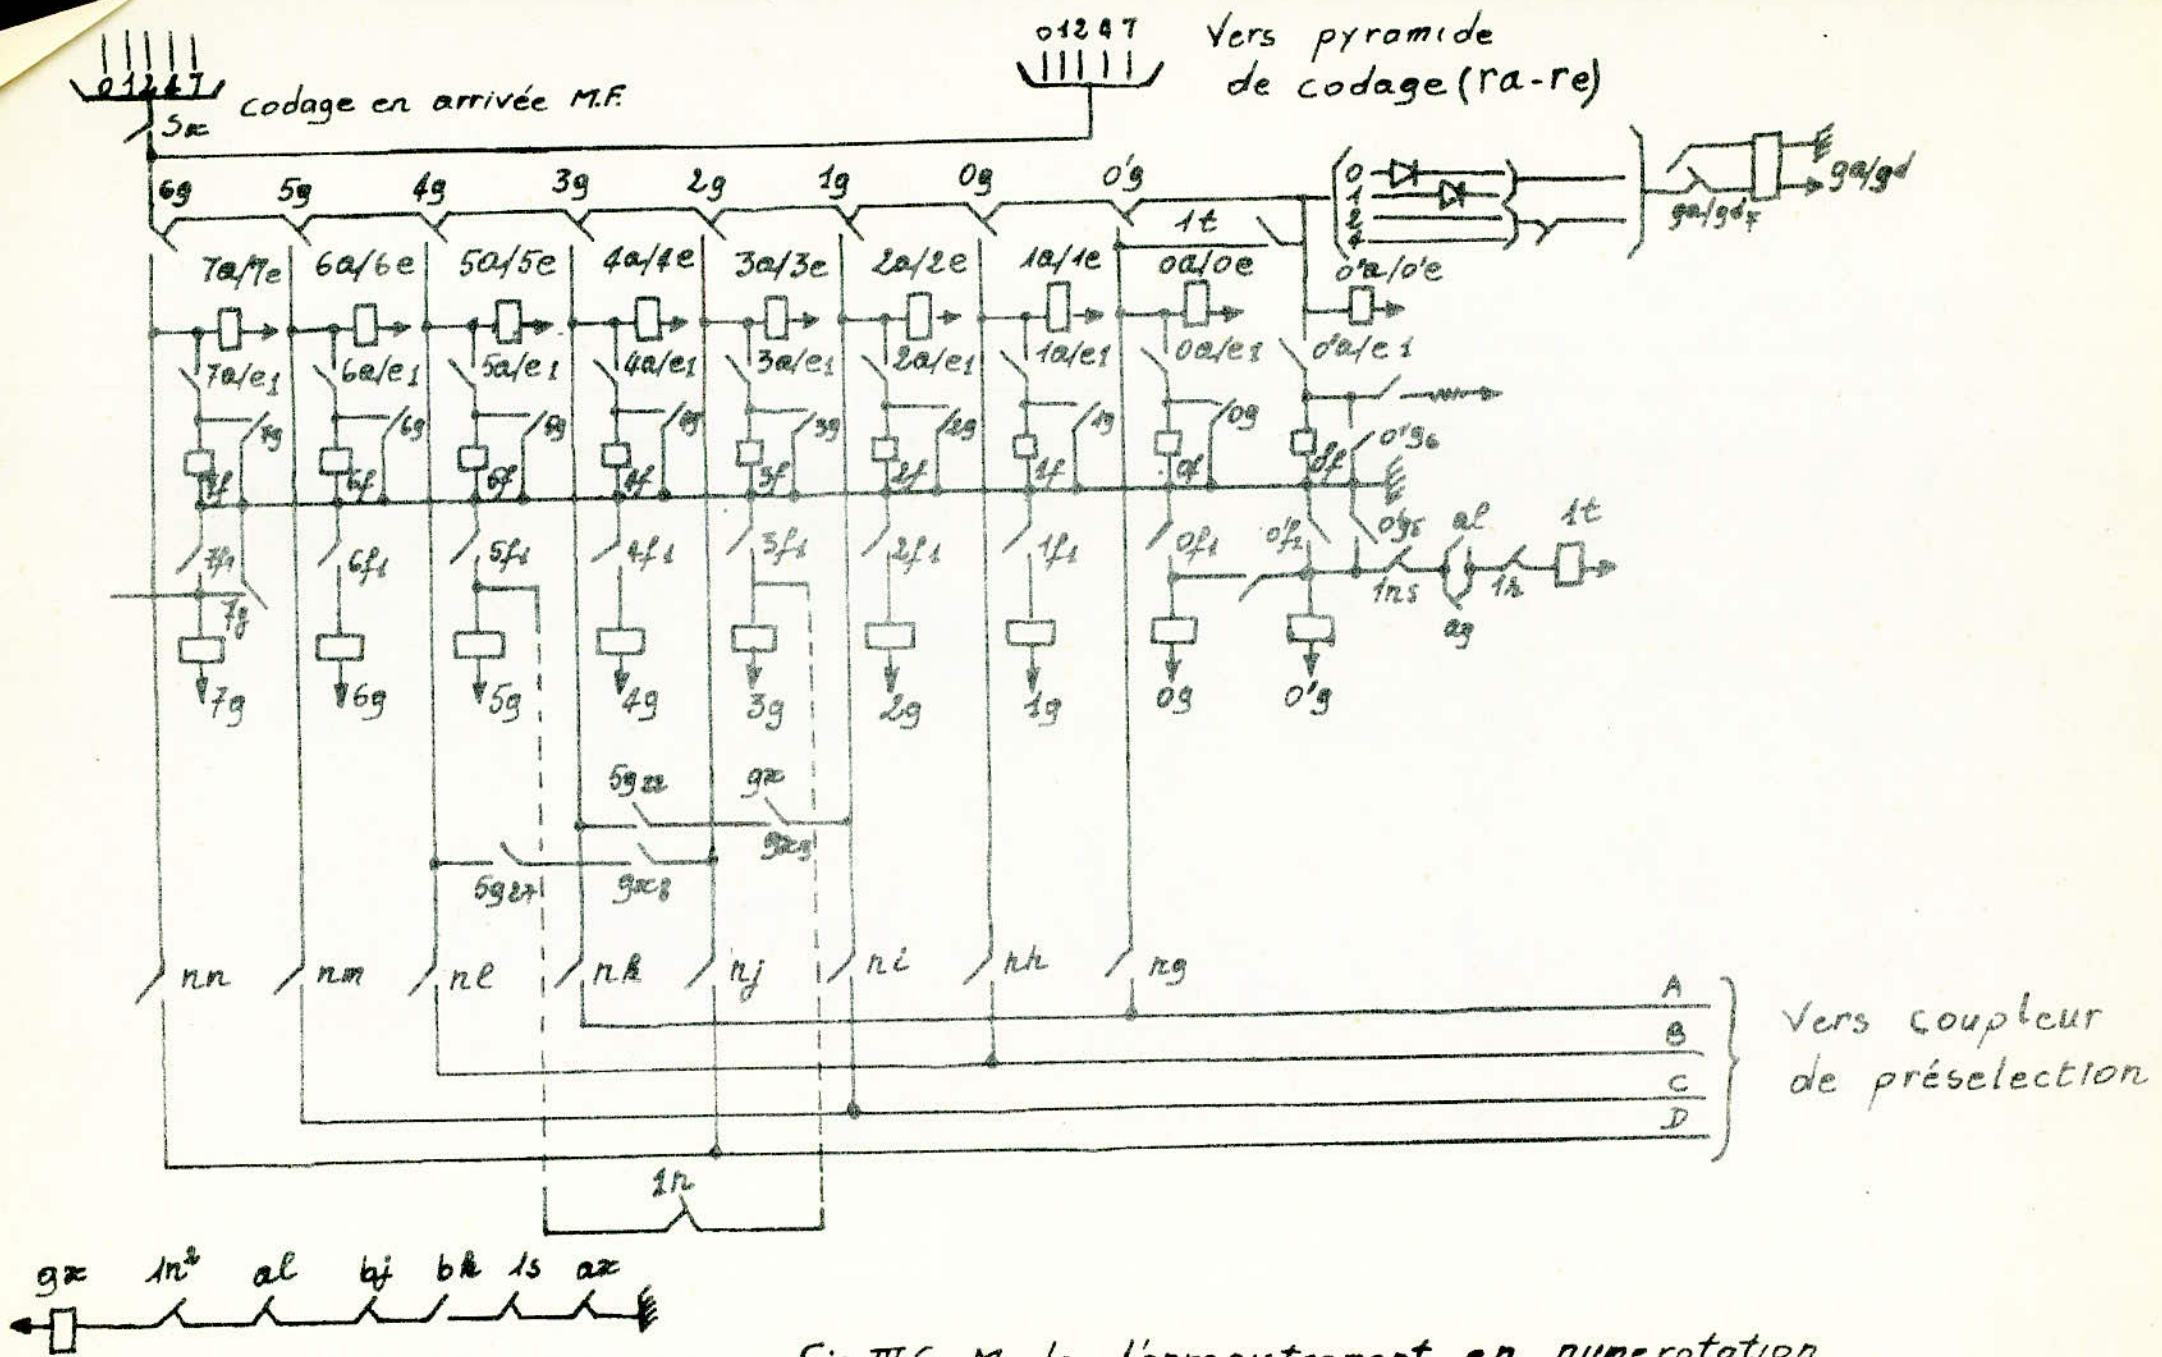 0 1 2 4 7
codage en arrivée M.F.
Sx
0 1 2 4 7
Vers pyramide
de codage (ra-re)
6g 5g 4g 3g 2g 1g 0g 0'g
1t
0
1
2
4
ga/gd
ga/gd7
7a/7e 6a/6e 5a/5e 4a/4e 3a/3e 2a/2e 1a/1e 0a/0e 0'a/0'e
7a/e1 6a/e1 5a/e1 4a/e1 3a/e1 2a/e1 1a/e1 0a/e1 0'a/e1
7g 6g 5g 3g 2g 1g 0g 0'g6
7f 6f 5f 4f 3f 2f 1f 0f 0'f
7f1 6f1 5f1 4f1 3f1 2f1 1f1 0f1
al 1t
7g
1ns ag 1r
7g 6g 5g 4g 3g 2g 1g 0g 0'g
5g22 gx
gx9
5g27 gx8
nn nm nl nk nj ni nh ng
A
B
C
D
Vers coupleur
de préselection
gx al bj bk 1s ax
en numerotation